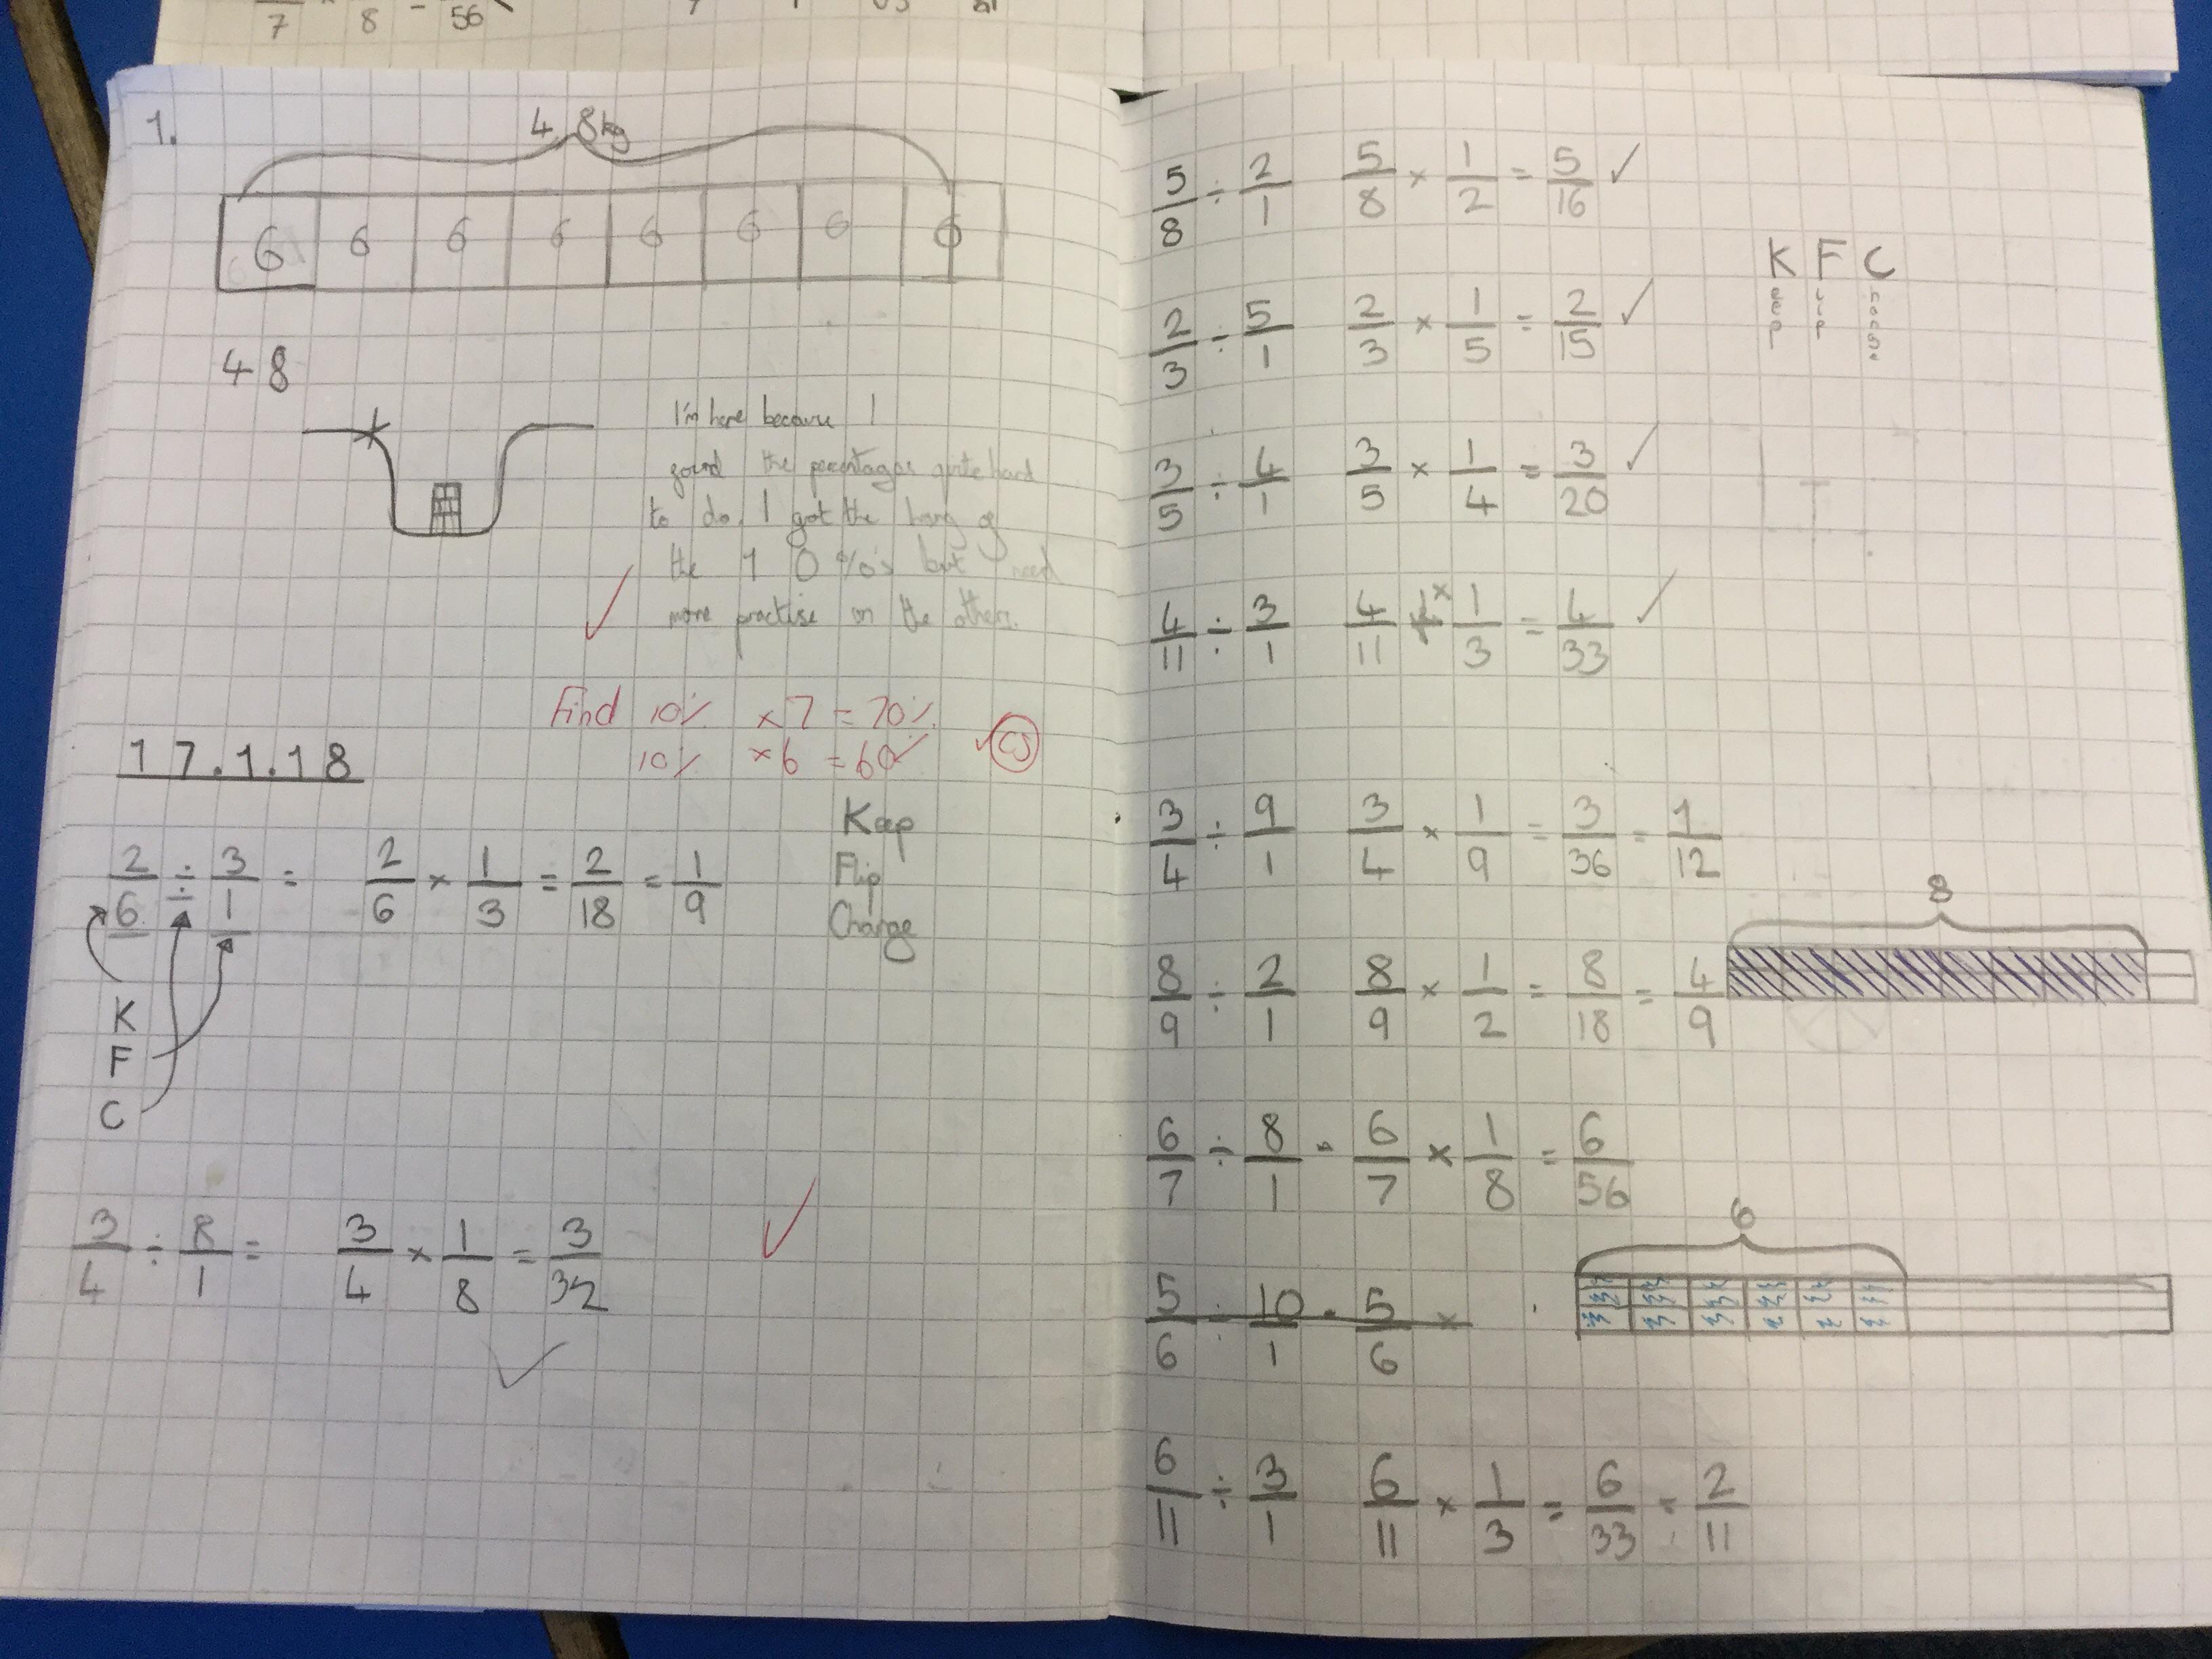 7 × 8 = 56
1.
4 8kg
6 6 6 6 6 6 6 6
48
I'm here because I
found the percentages quite hard
to do. I got the hang of
the 10%'s but need
more practise on the others.
Find 10% × 7 = 70%
10% × 6 = 60%
CJ
17.1.18
2/6 ÷ 3/1 = 2/6 × 1/3 = 2/18 = 1/9
Keep
Flip
Change
K
F
C
3/4 ÷ 8/1 = 3/4 × 1/8 = 3/32
5/8 ÷ 2/1 5/8 × 1/2 = 5/16 ✓
K F C
2/3 ÷ 5/1 2/3 × 1/5 = 2/15 ✓
3/5 ÷ 4/1 3/5 × 1/4 = 3/20 ✓
4/11 ÷ 3/1 4/11 × 1/3 = 4/33 ✓
3/4 ÷ 9/1 3/4 × 1/9 = 3/36 = 1/12
8
8/9 ÷ 2/1 8/9 × 1/2 = 8/18 = 4/9
6/7 ÷ 8/1 = 6/7 × 1/8 = 6/56
6
5/6 ÷ 10/1 = 5/6 ×
6/11 ÷ 3/1 6/11 × 1/3 = 6/33 = 2/11